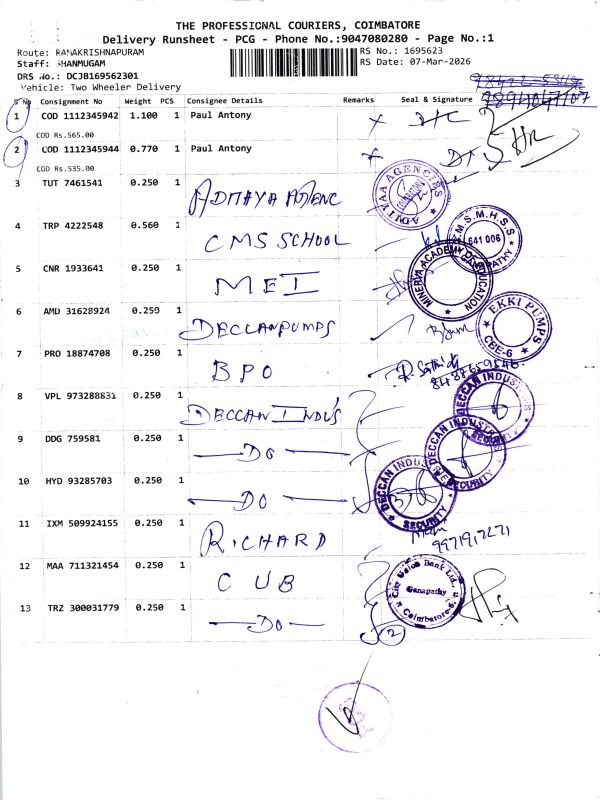 THE PROFESSIONAL COURIERS, COIMBATORE
Delivery Runsheet - PCG - Phone No.:9047080280 - Page No.:1
Route: RAMAKRISHNAPURAM
RS No.: 1695623
Staff: SHANMUGAM
RS Date: 07-Mar-2026
DRS No.: DCJB169562301
Vehicle: Two Wheeler Delivery
9894047107
S No Consignment No Weight PCS Consignee Details Remarks Seal & Signature
1 COD 1112345942 1.100 1 Paul Antony
COD Rs.565.00
2 COD 1112345944 0.770 1 Paul Antony
COD Rs.535.00
3 TUT 7461541 0.250 1 ADITYAA AGENC
ADITYAA AGENCIES
4 TRP 4222548 0.560 1 CMS SCHOOL
C.M.S.M.H.S.S
641 006
GANAPATHY
5 CNR 1933641 0.250 1 MEI
MINERVA ACADEMY OF EDUCATION
6 AMD 31628924 0.250 1 DECCAN PUMPS
EKKI PUMPS
CBE-6
7 PRO 18874708 0.250 1 BPO
8 VPL 973288831 0.250 1 DECCAN INDU'S
DECCAN INDUSTRIES
9 DDG 759581 0.250 1 — DO —
DECCAN INDUSTRIES
SECURITY
10 HYD 93285703 0.250 1 — DO —
DECCAN INDUSTRIES
SECURITY
11 IXM 509924155 0.250 1 RICHARD
12 MAA 711321454 0.250 1 CUB
City Union Bank Ltd.,
Ganapathy
Coimbatore-6.
13 TRZ 300031779 0.250 1 — DO —
2